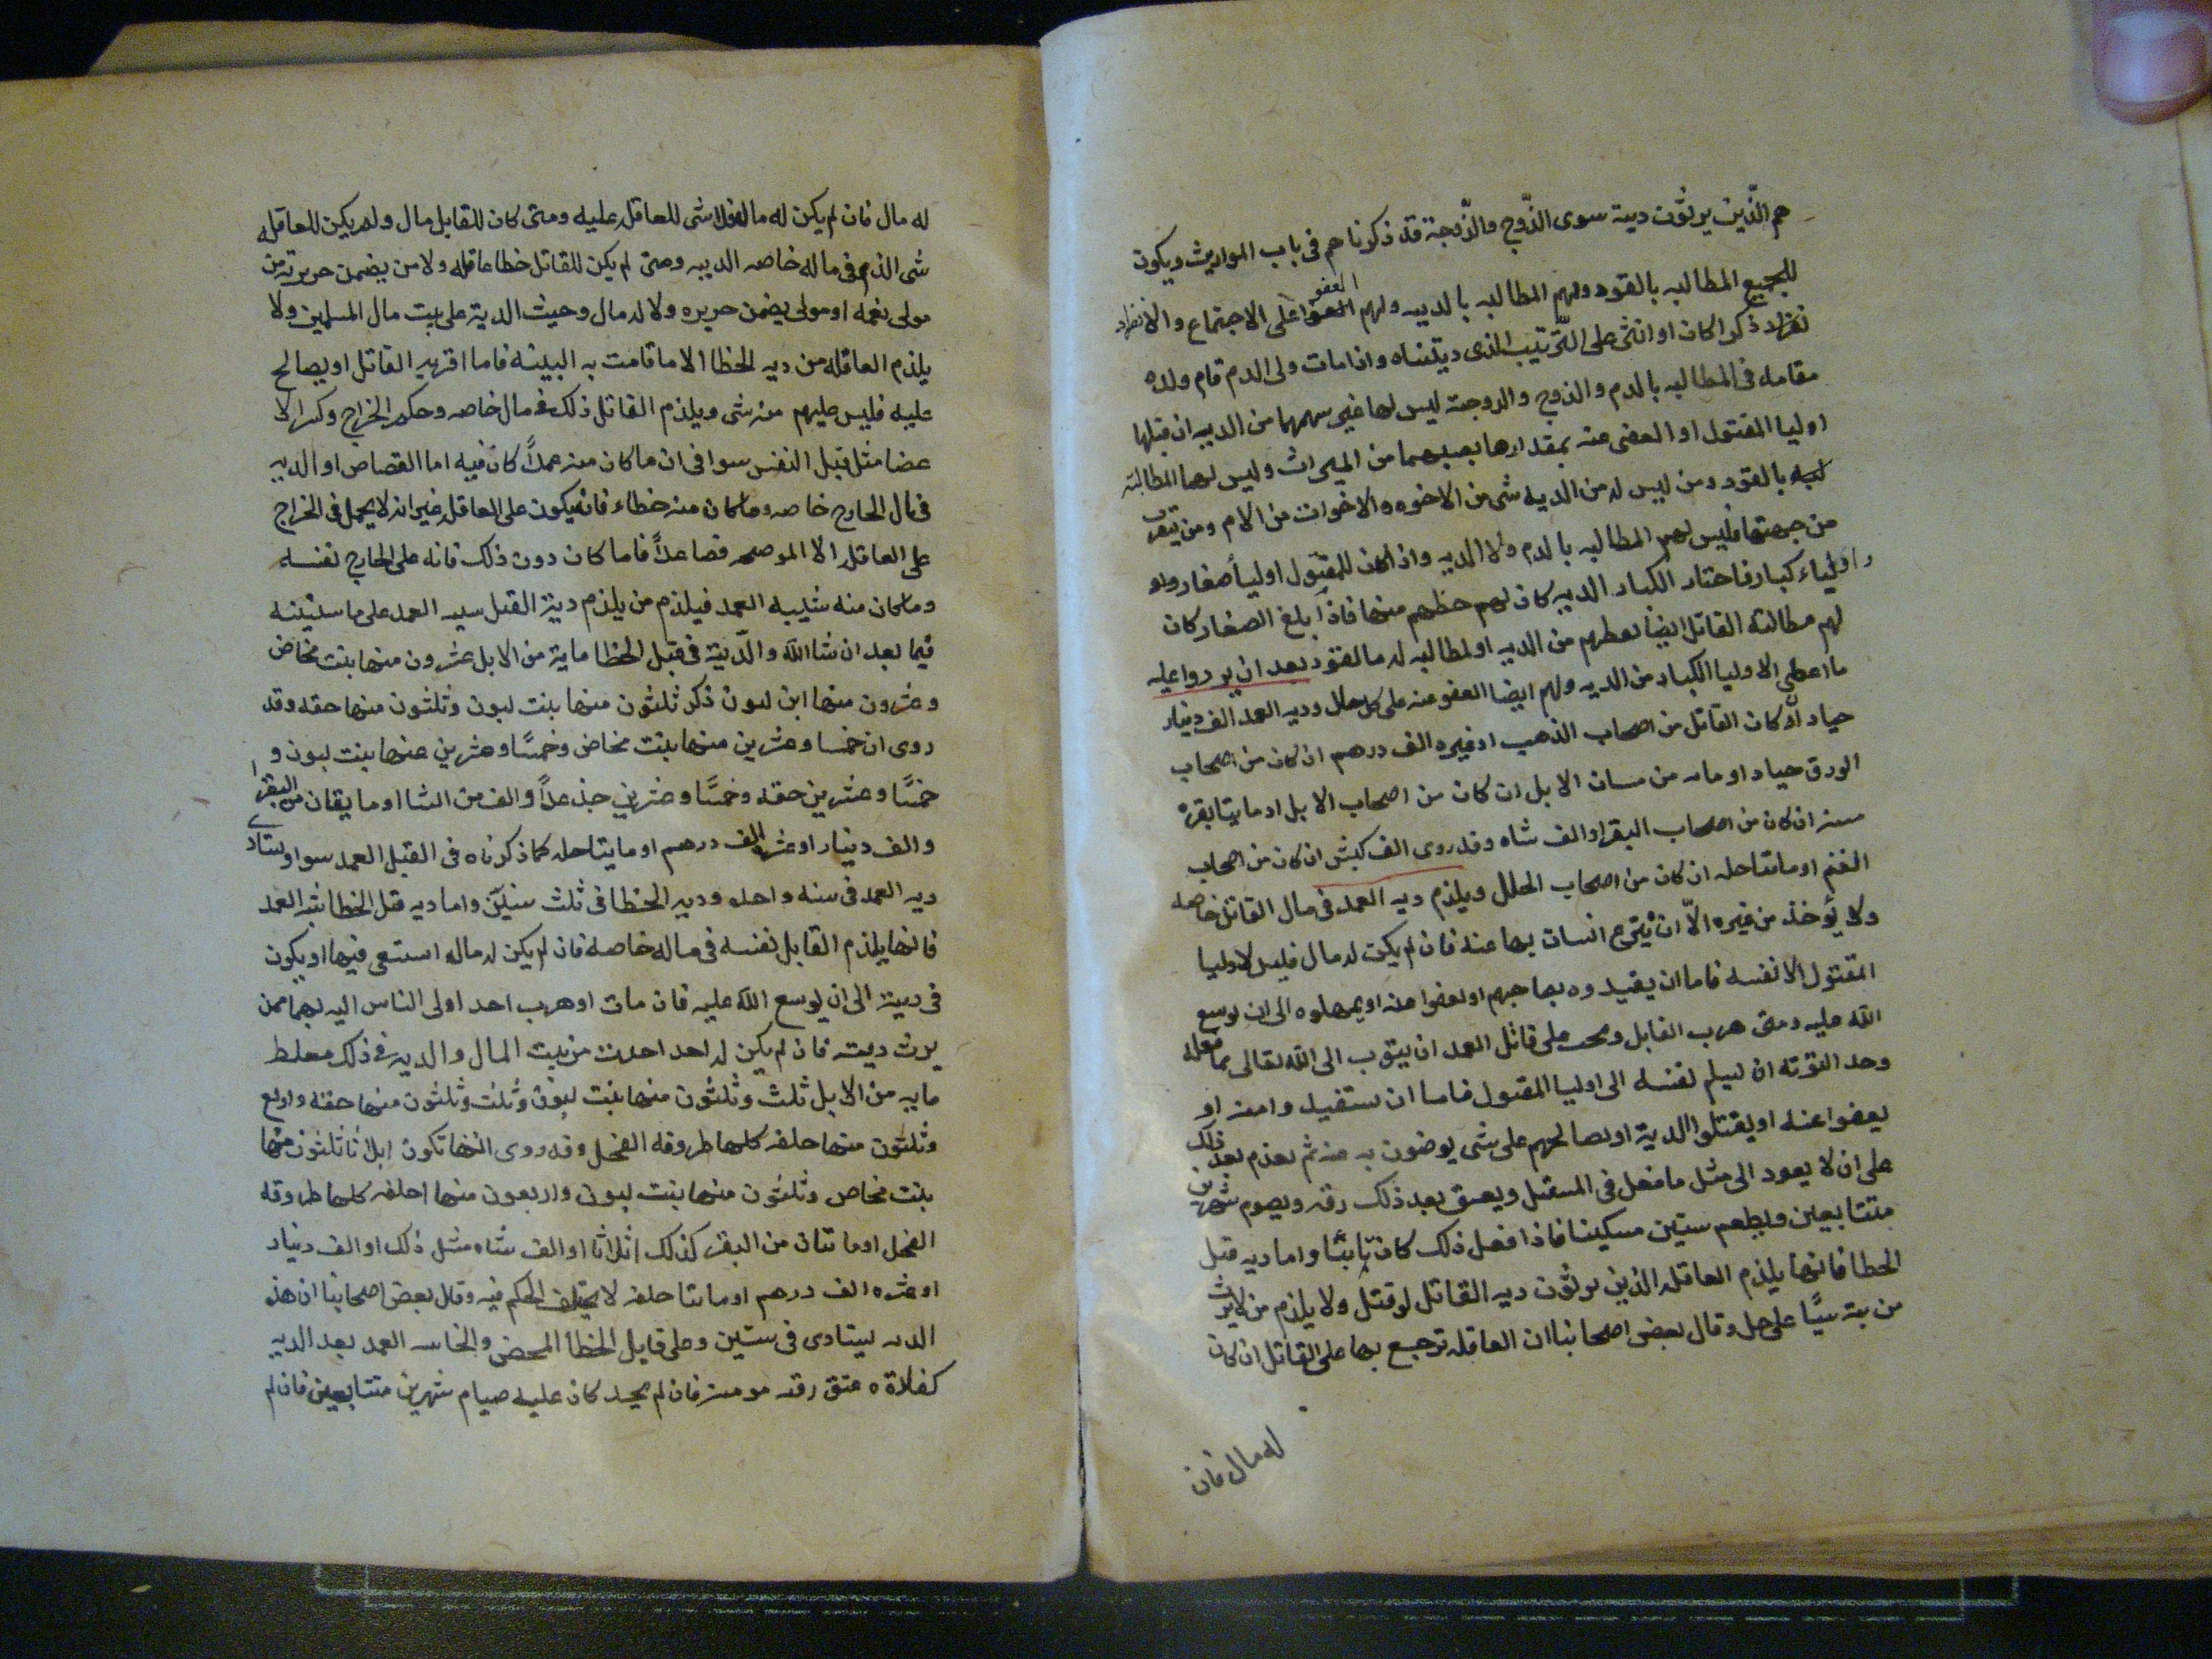 هم الذّين يرثون دية سوى الزّوج والزّوجة قد ذكرناهم فى باب المواريث ويكون
للجميع المطالبه بالقود ولهم المطالبه بالديه ولهم العفو على الاجتماع والانفراد
ذكرا كان او انثى على التّرتيب الذى ديتناه واذا مات ولى الدم قام ولده
مقامه فى المطالبه بالدم والزوج والزوجة ليس لها غير سهمهما من الديه ان قبلها
اوليا المقتول او العفى عنه بمقدارها بصبهما من الميراث وليس لهما المطالبة
بالقود ومن ليس له من الديه شى من الاخوه والاخوات من الام ومن يتقرب
من جهتها فليس لهم المطالبه بالدم ولا الديه واذا كان للمقتول اوليأ صغار وله
اولياء كبار فاختار الكبار الديه كان لهم حظهم منها فاذا بلغ الصغار كان
لهم مطالبة القاتل ايضا بحظهم من الديه او لمطالبه له بالقود بعد ان يردوا عليه
ما اعطى الاوليا الكبار من الديه ولهم ايضا العفو عنه على كل حال وديه العمد الف دينار
جياد ان كان القاتل من اصحاب الذهب او عشره الف درهم ان كان من اصحاب
الورق جياد او مايه من مسان الابل ان كان من اصحاب الابل او مايتا بقرة
مسنه ان كان من اصحاب البقر او الف شاه وقد روى الف كبش ان كان من اصحاب
الغنم او مايتا حله ان كان من اصحاب الحلل ويلزم ديه العمد فى مال القاتل خاصه
ولا يؤخذ من غيره الاّ ان يتبرع انسان بها عنه فان لم يكن له مال فليس لاوليا
المقتول الا نفسه فاما ان يقيدوه بصاحبهم او يعفوا عنه او يمهلوه الى ان يوسع
الله عليه ومتى هرب القاتل ويجب على قاتل العمد ان يتوب الى الله تعالى مما فعله
وحد التوبة ان يسلم نفسه الى اوليا المقتول فاما ان يستقيد وامنه او
يعفوا عنه او يقبلوا الدية او يصالحهم على شى يرضون به عنه ثم يعزم بعد ذلك
على ان لا يعود الى مثل ما فعل فى المستقبل ويعتق بعد ذلك رقبه ويصوم شهرين
متتابعين ويطعم ستين مسكينا فاذا فعل ذلك كان تائبًا واما ديه قتل
الخطا فانها يلزم العاقله الذين يرثون ديه القاتل لو قتل ولا يلزم من لا يرث
من ديته شيًا على حال وقال بعض اصحابنا ان العاقله ترجع بها على القاتل ان كان
له مال فان
له مال فان لم يكن له مال فلا شى للعاقله عليه ومتى كان للقاتل مال ولم يكن للعاقله
شى الزم فى ماله خاصه الديه ومتى لم يكن للقاتل خطا عاقله ولا من يضمن جريرته من
مولى نعمه او مولى يضمن جريره ولا له مال وجبت الدية على بيت مال المسلمين ولا
يلزم العاقله من ديه الخطا الا ما قامت به البينه فاما اقر به القاتل او يصالح
عليه فليس عليهم منه شى ويلزم القاتل ذلك فى مال خاصه وحكم الجراح وكسر الا
عضا مثل قبل النفس سوا فى ان ما كان منه عمدًا كان فيه اما القصاص او الديه
فى مال الجارح خاصه وما كان منه خطاء فانه يكون على العاقله غير انه لا يحمل فى الجراح
على العاقله الا الموضحه فصاعدًا فاما كان دون ذلك فانه على الجارح نفسه
وما كان منه شبيه العمد فيلزم من يلزم دية القتل شبيه العمد على ما سنبينه
فيما بعد ان شا الله والدّية فى قتل الخطا ماية من الابل عشرون منها بنت مخاض
وعشرون منها ابن لبون ذكر ثلثون منها بنت لبون وثلثون منها حقه وقد
روى ان خمسا وعشرين منها بنت مخاض وخمسًا وعشرين منها بنت لبون و
خمسًا وعشرين حقه وخمسًا وعشرين جذعةً والف من الشا او مايتان من البقر
والف دينار او عشره الف درهم او مايتا حله كما ذكرناه فى القتل العمد سوا ويستاد
ديه العمد فى سنه واحده وديه الخطا فى ثلث سنين واما ديه قتل الخطا شبه العمد
فانها يلزم القاتل نفسه فى ماله خاصه فان لم يكن له مال استسعى فيها او يكون
فى ديته الى ان يوسع الله عليه فان مات او هرب احد اولى الناس اليه بها ممن
يرث ديته فان لم يكن له احد اخذت من بيت المال والديه فى ذلك مغلظ
مايه من الابل ثلث وثلثون منها بنت لبون وثلث وثلثون منها حقه واربع
وثلثون منها خلفه كلها طروقه الفحل وقد روى انها تكون اثلاثا ثلثون منها
بنت مخاض وثلثون منها بنت لبون واربعون منها خلفه كلها طروقه
الفحل او مائتان من البقر كذلك اثلاثا او الف شاه مثل ذلك او الف دينار
او عشره الف درهم او مائتا حله لا يختلف الحكم فيه وقال بعض اصحابنا ان هذه
الديه يستادى فى سنتين وعلى قاتل الخطا المحض والخطا شبه العمد بعد الديه
كفارة عتق رقبه مومنه فان لم يجد كان عليه صيام شهرين متتابعين فان لم